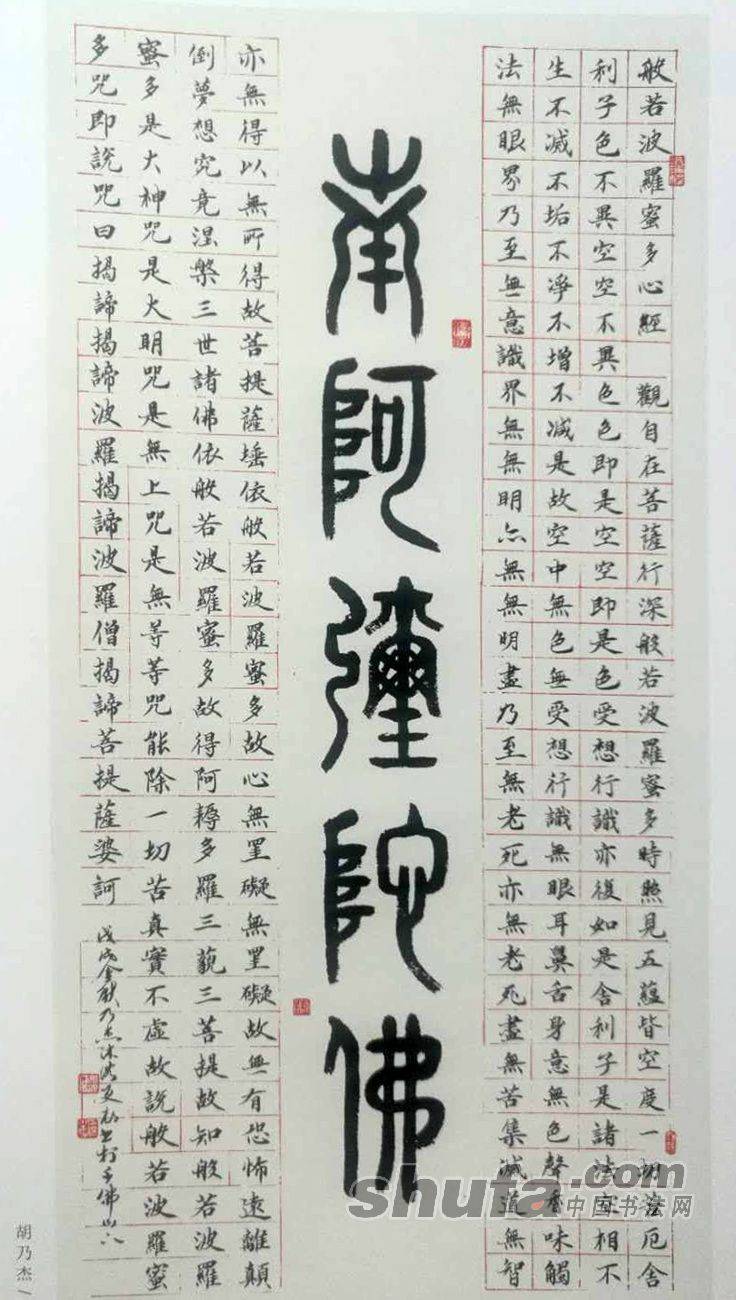 般若波羅蜜多心經 觀自在菩薩行深般若波羅蜜多時照見五蘊皆空度一切苦厄舍
利子色不異空空不異色色即是空空即是色受想行識亦復如是舍利子是諸法空相不
生不滅不垢不淨不增不減是故空中無色無受想行識無眼耳鼻舌身意無色聲香味觸
法無眼界乃至無意識界無無明亦無無明盡乃至無老死亦無老死盡無苦集滅道無智
南阿彌陀佛
亦無得以無所得故菩提薩埵依般若波羅蜜多故心無罣礙無罣礙故無有恐怖遠離顛
倒夢想究竟涅槃三世諸佛依般若波羅蜜多故得阿耨多羅三藐三菩提故知般若波羅
蜜多是大神咒是大明咒是無上咒是無等等咒能除一切苦真實不虛故說般若波羅蜜
多咒即說咒曰揭諦揭諦波羅揭諦波羅僧揭諦菩提薩婆訶
戊戌金秋乃杰沐浴千佛山
胡乃杰
shufa.com
中国书法网